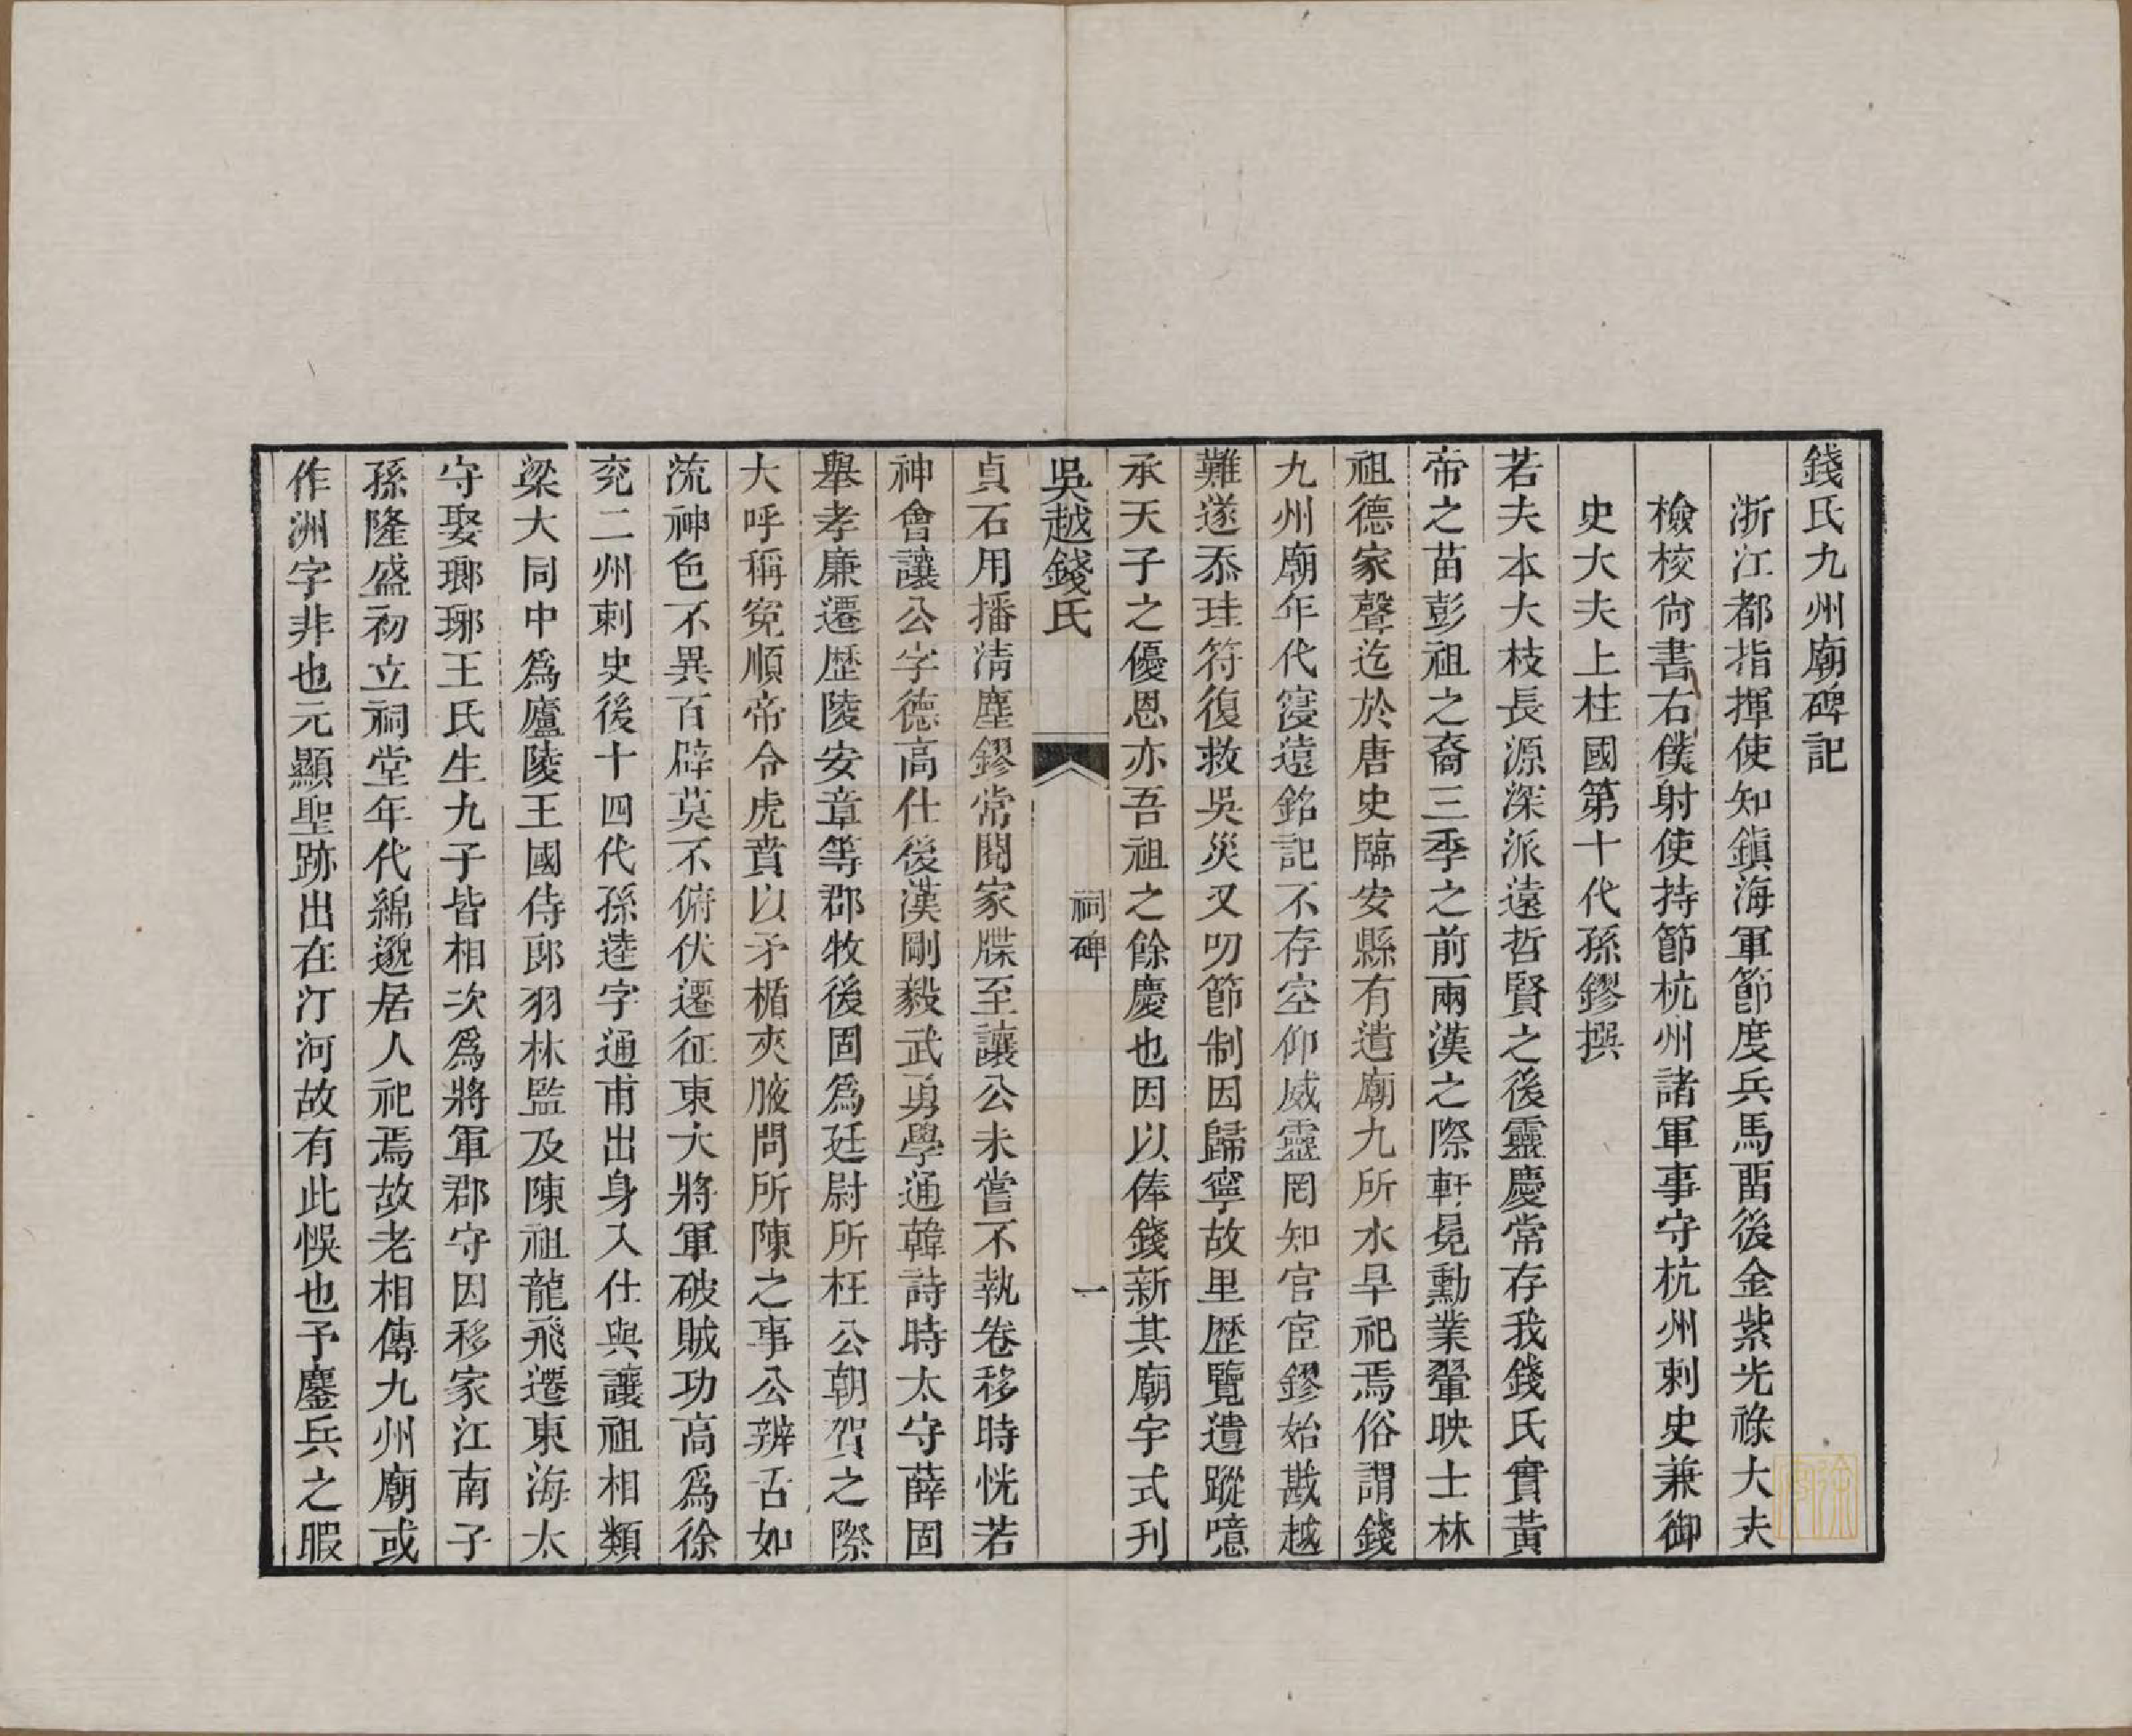 錢氏九州廟碑記
浙江都指揮使知鎮海軍節度兵馬畱後金紫光祿大夫
檢校尙書右僕射使持節杭州諸軍事守杭州刺史兼御
史大夫上柱國第十代孫鏐撰
若夫本大枝長源深派遠哲賢之後靈慶常存我錢氏實黃
帝之苗彭祖之裔三季之前兩漢之際軒冕勳業翬映士林
祖德家聲迄於唐史臨安縣有遺廟九所水旱祀焉俗謂錢
九州廟年代寖遠銘記不存空仰威靈罔知官宦鏐始戡越
難遂忝珪符復救吳災又叨節制因歸寧故里歷覽遺蹤噫
承天子之優恩亦吾祖之餘慶也因以俸錢新其廟宇式刊
吳越錢氏 祠碑 一
貞石用播淸塵鏐常閱家牒至讓公未嘗不執卷移時恍若
神會讓公字德高仕後漢剛毅武勇學通韓詩時太守薛固
舉孝廉遷歷陵安章等郡牧後固爲廷尉所枉公朝賀之際
大呼稱寃順帝令虎賁以矛楯夾腋問所陳之事公辨舌如
流神色不異百辟莫不俯伏遷征東大將軍破賊功高爲徐
兖二州刺史後十四代孫逵字通甫出身入仕與讓祖相類
梁大同中爲廬陵王國侍郎羽林監及陳祖龍飛遷東海太
守娶瑯琊王氏生九子皆相次爲將軍郡守因移家江南子
孫隆盛初立祠堂年代綿邈居人祀焉故老相傳九州廟或
作洲字非也元顯聖跡出在汀河故有此悞也予鏖兵之暇